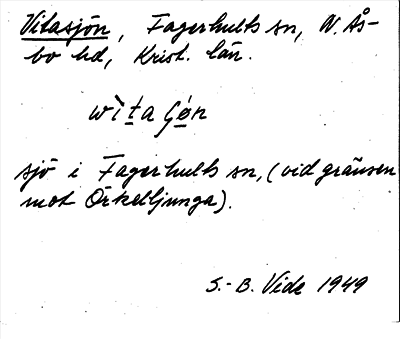 Vitasjön, Fagerhults sn, N. Ås-
bo hd, Krist. län.
wìta ʃǿn
sjö i Fagerhults sn, (vid gränsen
mot Örkelljunga).
S.-B. Vide 1949